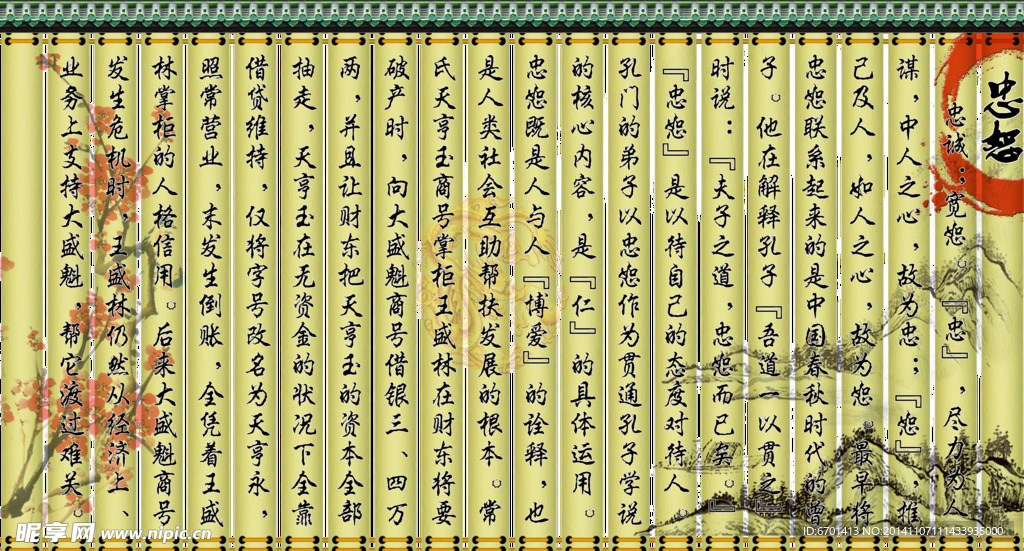 忠恕
忠诚；宽恕。『忠』，尽力为人
谋，中人之心，故为忠；『恕』，推
己及人，如人之心，故为恕。最早将
忠恕联系起来的是中国春秋时代的曾
子。他在解释孔子『吾道一以贯之』
时说：『夫子之道，忠恕而已矣。』
『忠恕』是以待自己的态度对待人
孔门的弟子以忠恕作为贯通孔子学说
的核心内容，是『仁』的具体运用。
忠恕既是人与人『博爱』的诠释，也
是人类社会互助帮扶发展的根本。常
氏天亨玉商号掌柜王盛林在财东将要
破产时，向大盛魁商号借银三、四万
两，并且让财东把天亨玉的资本全部
抽走，天亨玉在无资金的状况下全靠
借贷维持，仅将字号改名为天亨永，
照常营业，未发生倒账，全凭着王盛
林掌柜的人格信用。后来大盛魁商号
发生危机时，王盛林仍然从经济上、
业务上支持大盛魁，帮它渡过难关。
昵享网 www.nipic.cn
ID:6701413 NO:20141107111433935000